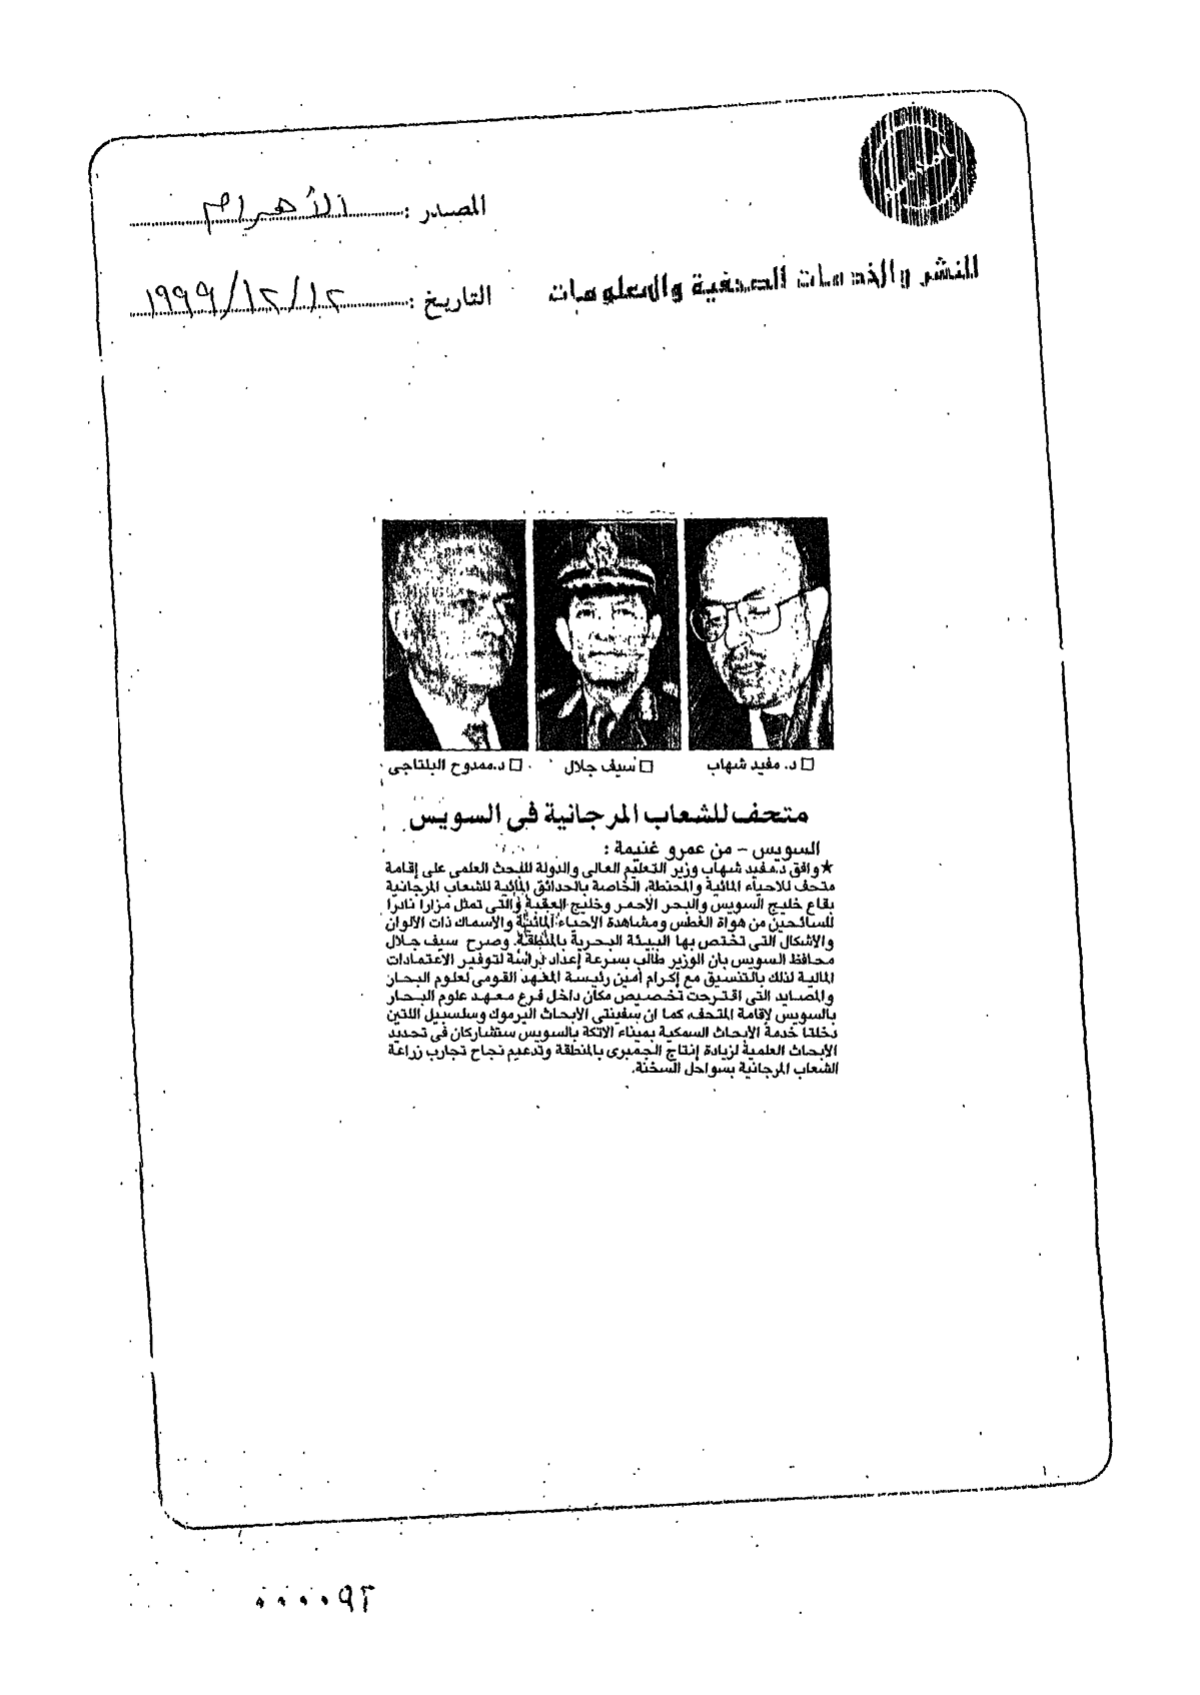 المصدر : الأهرام
للنشر والخدمات الصحفية والمعلومات
التاريخ : ١٢/١٢/١٩٩٩
□ د. مفيد شهاب
□ سيف جلال
□ د.ممدوح البلتاجى
متحف للشعاب المرجانية فى السويس
السويس – من عمرو غنيمة :
★وافق د.مفيد شهاب وزير التعليم العالى والدولة للبحث العلمى على إقامة
متحف للاحياء المائية والمحنطة، الخاصة بالحدائق المائية للشعاب المرجانية
بقاع خليج السويس والبحر الاحمر وخليج العقبة والتى تمثل مزارا نادرا
للسائحين من هواة الغطس ومشاهدة الاحياء المائية والاسماك ذات الالوان
والاشكال التى تختص بها البيئة البحرية بالمنطقة. وصرح سيف جلال
محافظ السويس بان الوزير طالب بسرعة إعداد دراسة لتوفير الاعتمادات
المالية لذلك بالتنسيق مع إكرام أمين رئيسة المعهد القومى لعلوم البحار
والمصايد التى اقترحت تخصيص مكان داخل فرع معهد علوم البحار
بالسويس لاقامة المتحف، كما ان سفينتى الابحاث اليرموك وسلسبيل اللتين
دخلتا خدمة الابحاث السمكية بميناء الاتكة بالسويس ستشاركان فى تحديد
الابحاث العلمية لزيادة إنتاج الجمبرى بالمنطقة وتدعيم نجاح تجارب زراعة
الشعاب المرجانية بسواحل السخنة.